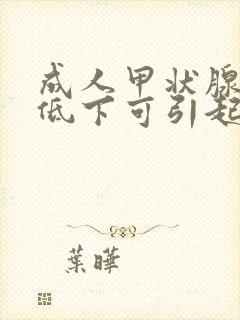 成人甲状腺
低下可引起
葉曄